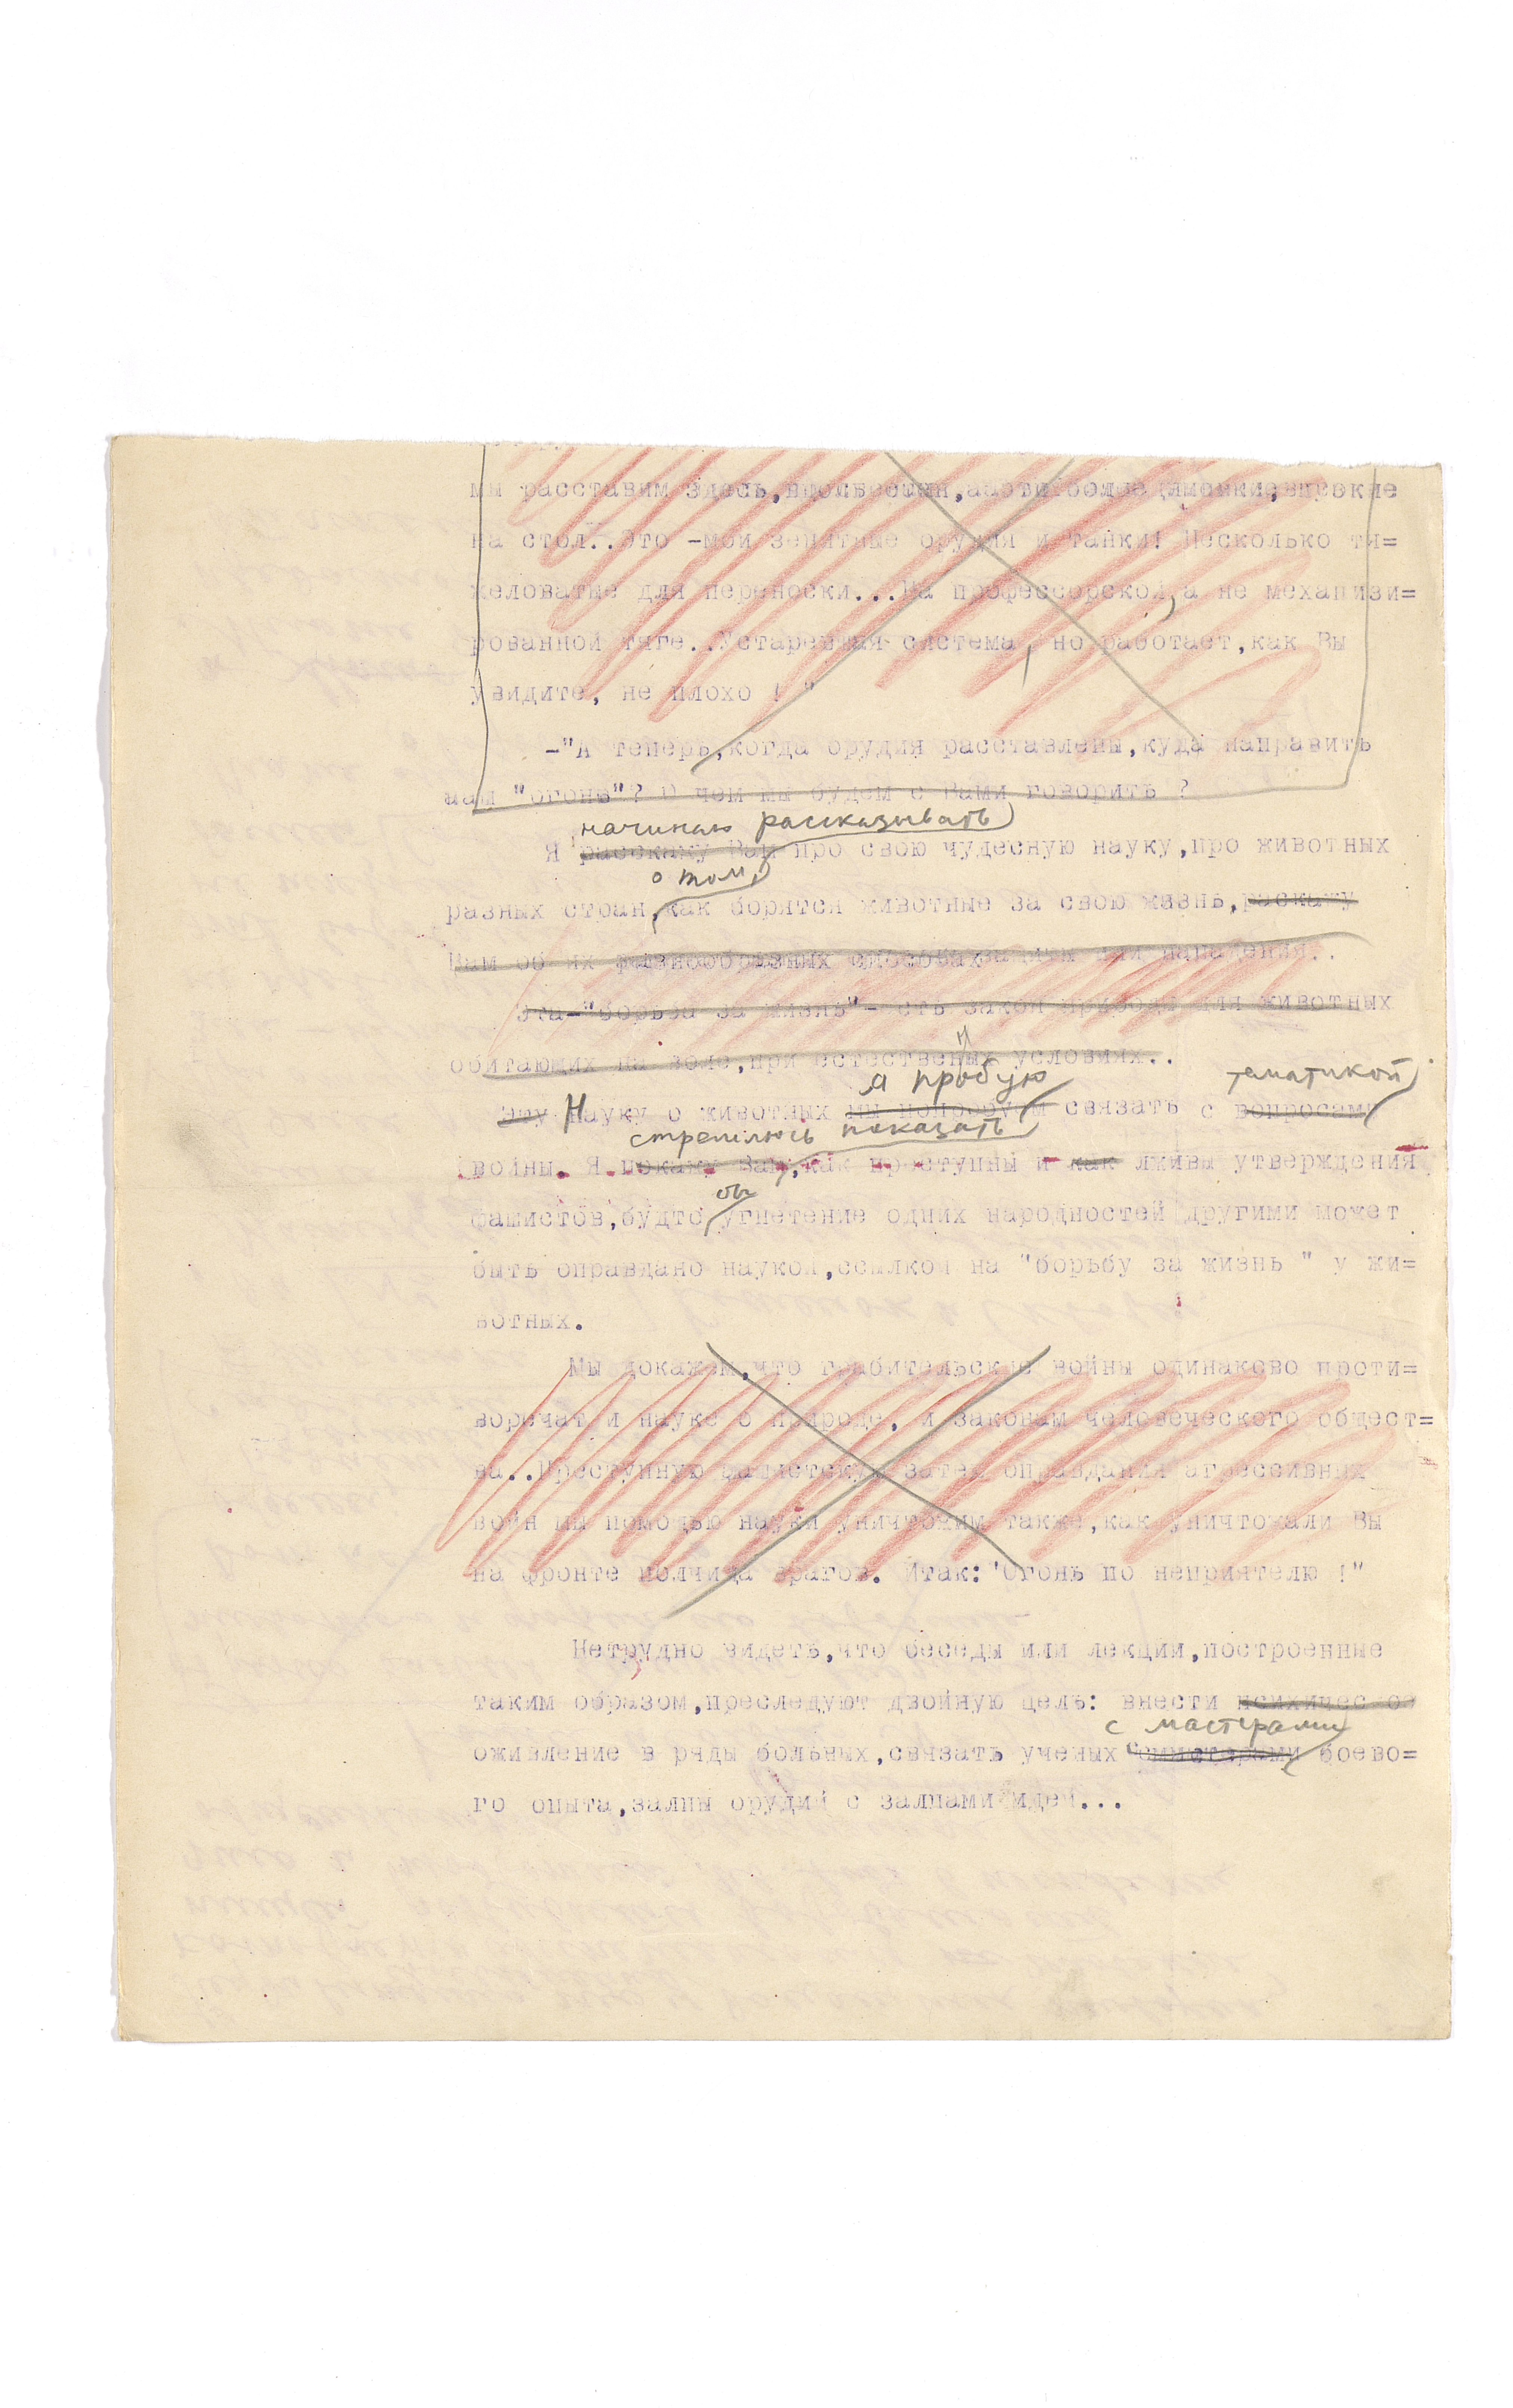 мы расставим здесь,
на стол..Это -мои зенитные орудия и танки! Несколько тя=
желоватые для переноски...На профессорской,а не механизи=
рованной тяге..Устаревшая система, но работает,как Вы
увидите, не плохо ! "
-"А теперь,когда орудия расставлены,куда направить
нам "огонь"? О чем мы будем с Вами говорить ?
начинаю рассказывать
Я расскажу Вам про свою чудесную науку,про животных
о том,
разных стран,как борятся животные за свою жизнь,раскажу
Вам об их разнообразных способах или нападения..
Эта-"борьба за жизнь"- закон природы для животных
н
обитающих на воле,при естественых условиях..
я пробую тематикой
Эту Науку о животных мы попробуем связать с вопросами
стремлюсь показать
войны. Я покажу Вам,как преступны и как лживы утверждения
фашистов,будто угнетение одних народностей другими может
быть оправдано наукой,ссылкой на "борьбу за жизнь " у жи=
вотных.
Мы докажем,что грабительские войны одинаково проти=
воречат и науке о природе, и законам человеческого общест=
ва..Преступную фашистскую затею оправдания агрессивных
войн мы помощью науки уничтожим также,как уничтожали Вы
на фронте полчища врагов. Итак:"Огонь по неприятелю !"
Нетрудно видеть,что беседы или лекции,построенные
таким образом,преследуют двойную цель: внести психичес о
с мастерами
оживление в ряды больных,связать ученых боево=
го опыта,залпы орудий с залпами идей...